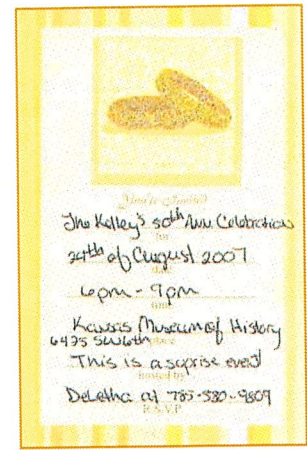 You're Invited
The Kelley's 50th Ann. Celebration
for
24th of August 2007
date
6pm - 9pm
time
Kansas Museum of History
6425 SW 6th
place
This is a suprise event!
hosted by
DeLetha at 785-580-9809
R.S.V.P.